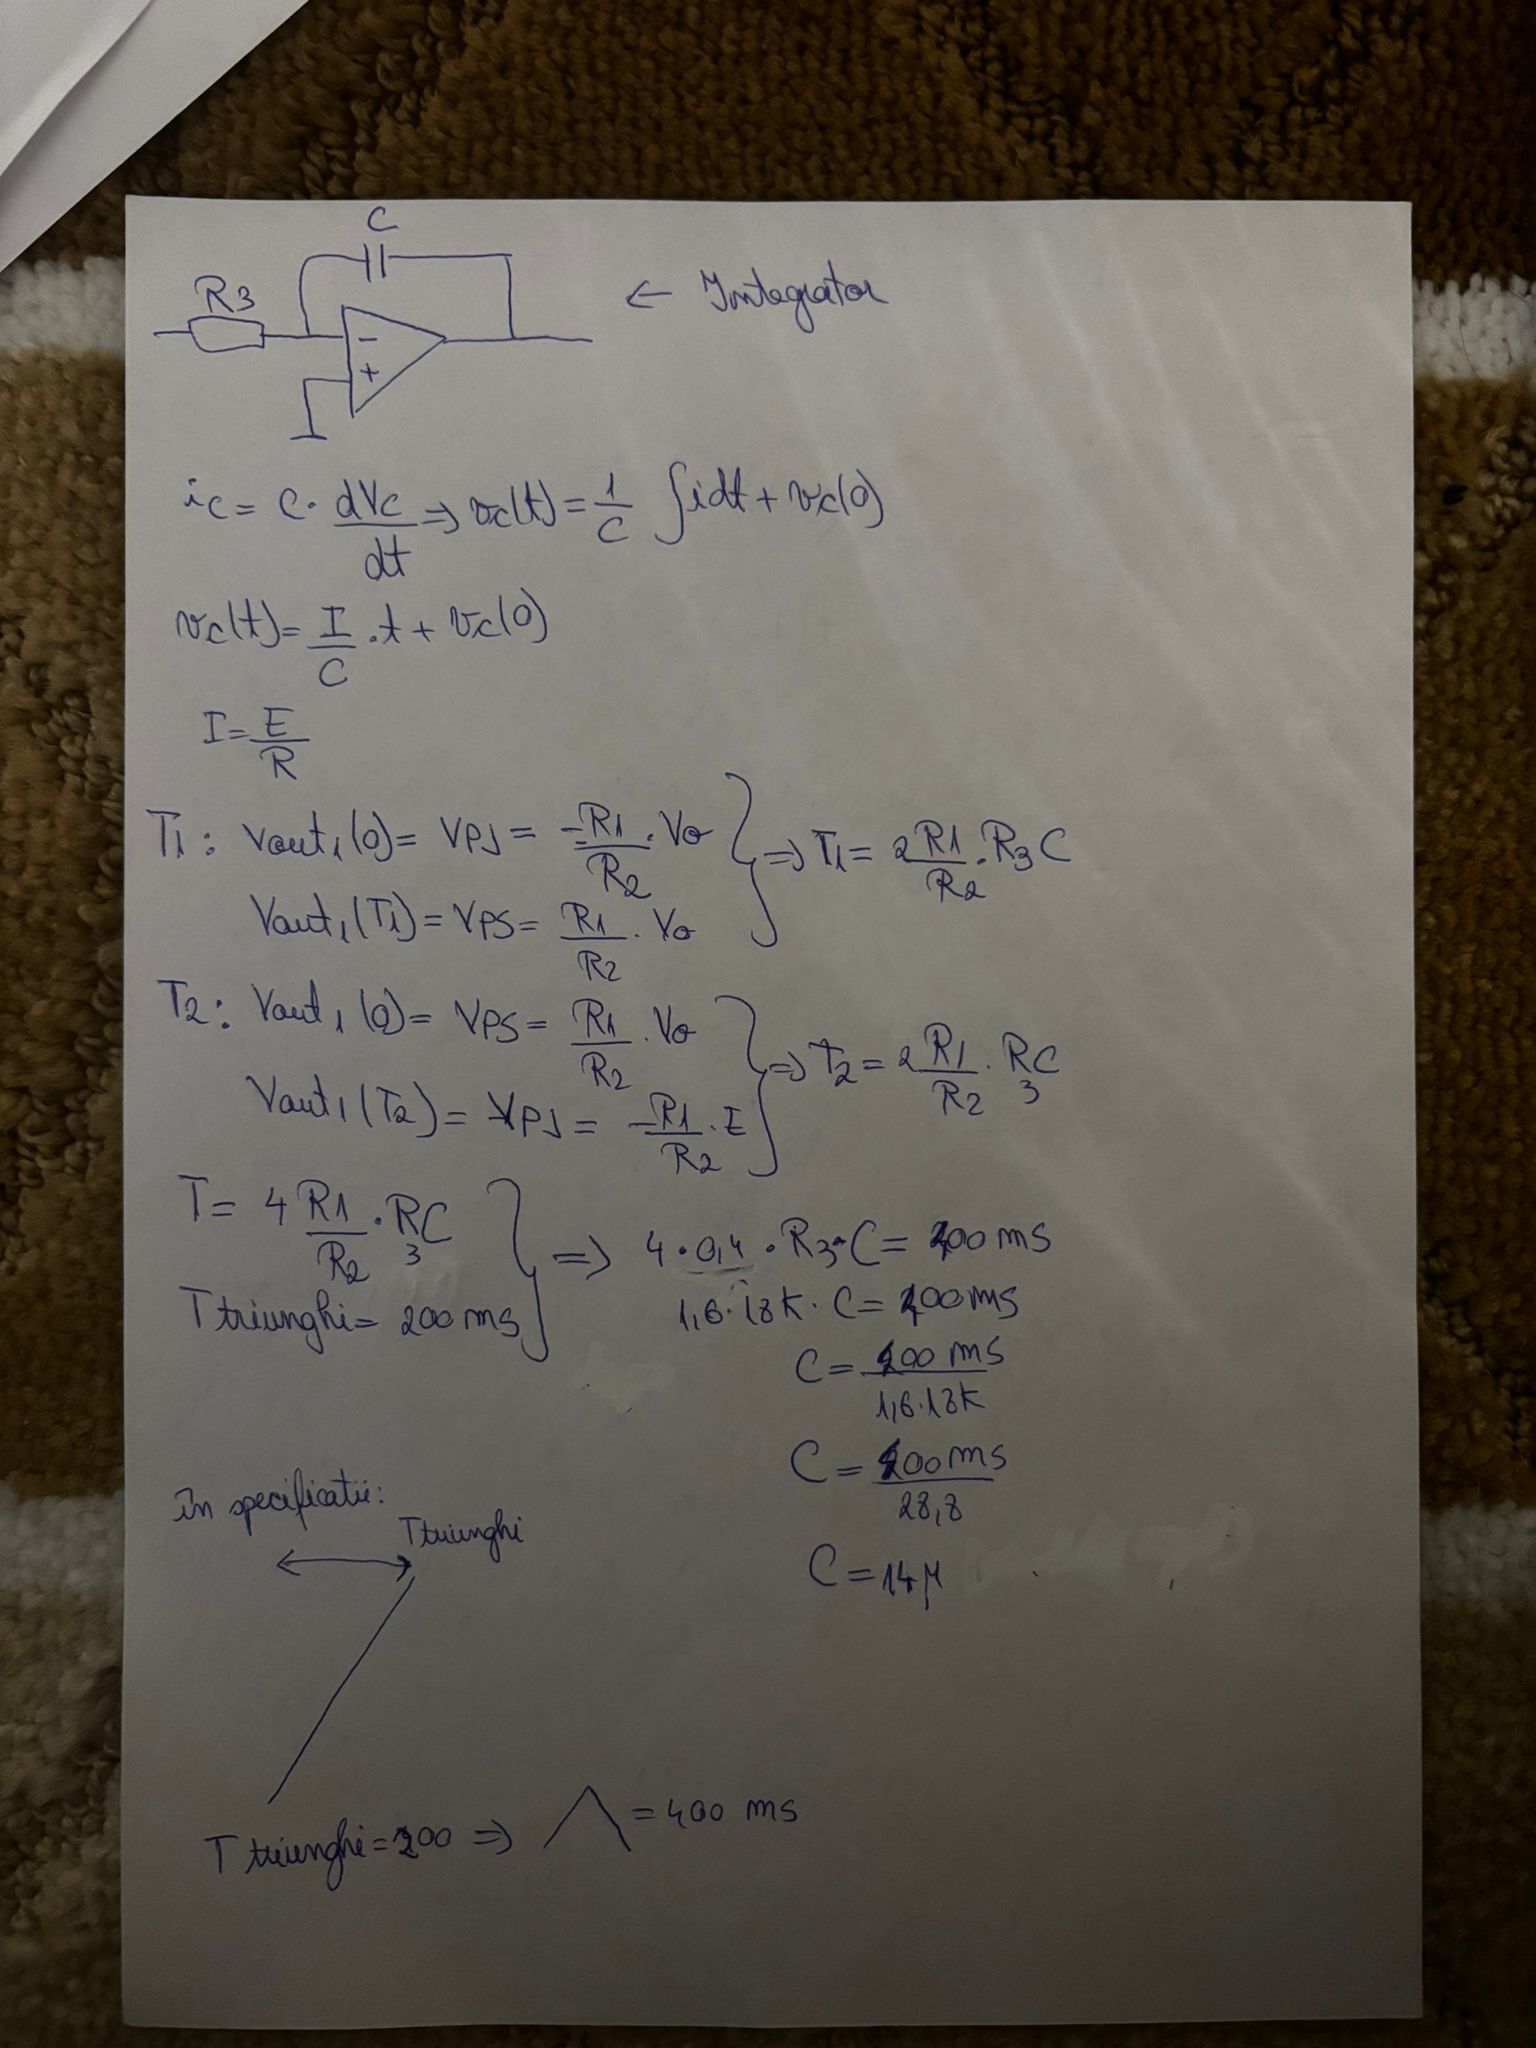 C
R3
← Integrator
-
+
ic = C · dVc/dt ⇒ vc(t) = 1/C ∫ i dt + vc(0)
vc(t) = I/C · t + vc(0)
I = E/R
T1: Vout1(0) = VPJ = -R1/R2 · Vo
Vout1(T1) = VPS = R1/R2 · Vo
⇒ T1 = 2 R1/R2 · R3C
T2: Vout1(0) = VPS = R1/R2 · Vo
Vout1(T2) = VPJ = -R1/R2 · E
⇒ T2 = 2 R1/R2 · R3C
T = 4 R1/R2 · R3C
T triunghi = 200 ms
⇒ 4 · 0,4 · R3 · C = 400 ms
1,6 · 18K · C = 400 ms
C = 400 ms / 1,6 · 18K
C = 400 ms / 28,8
C = 14µ
În specificatii:
T triunghi
T triunghi = 200 ⇒ = 400 ms